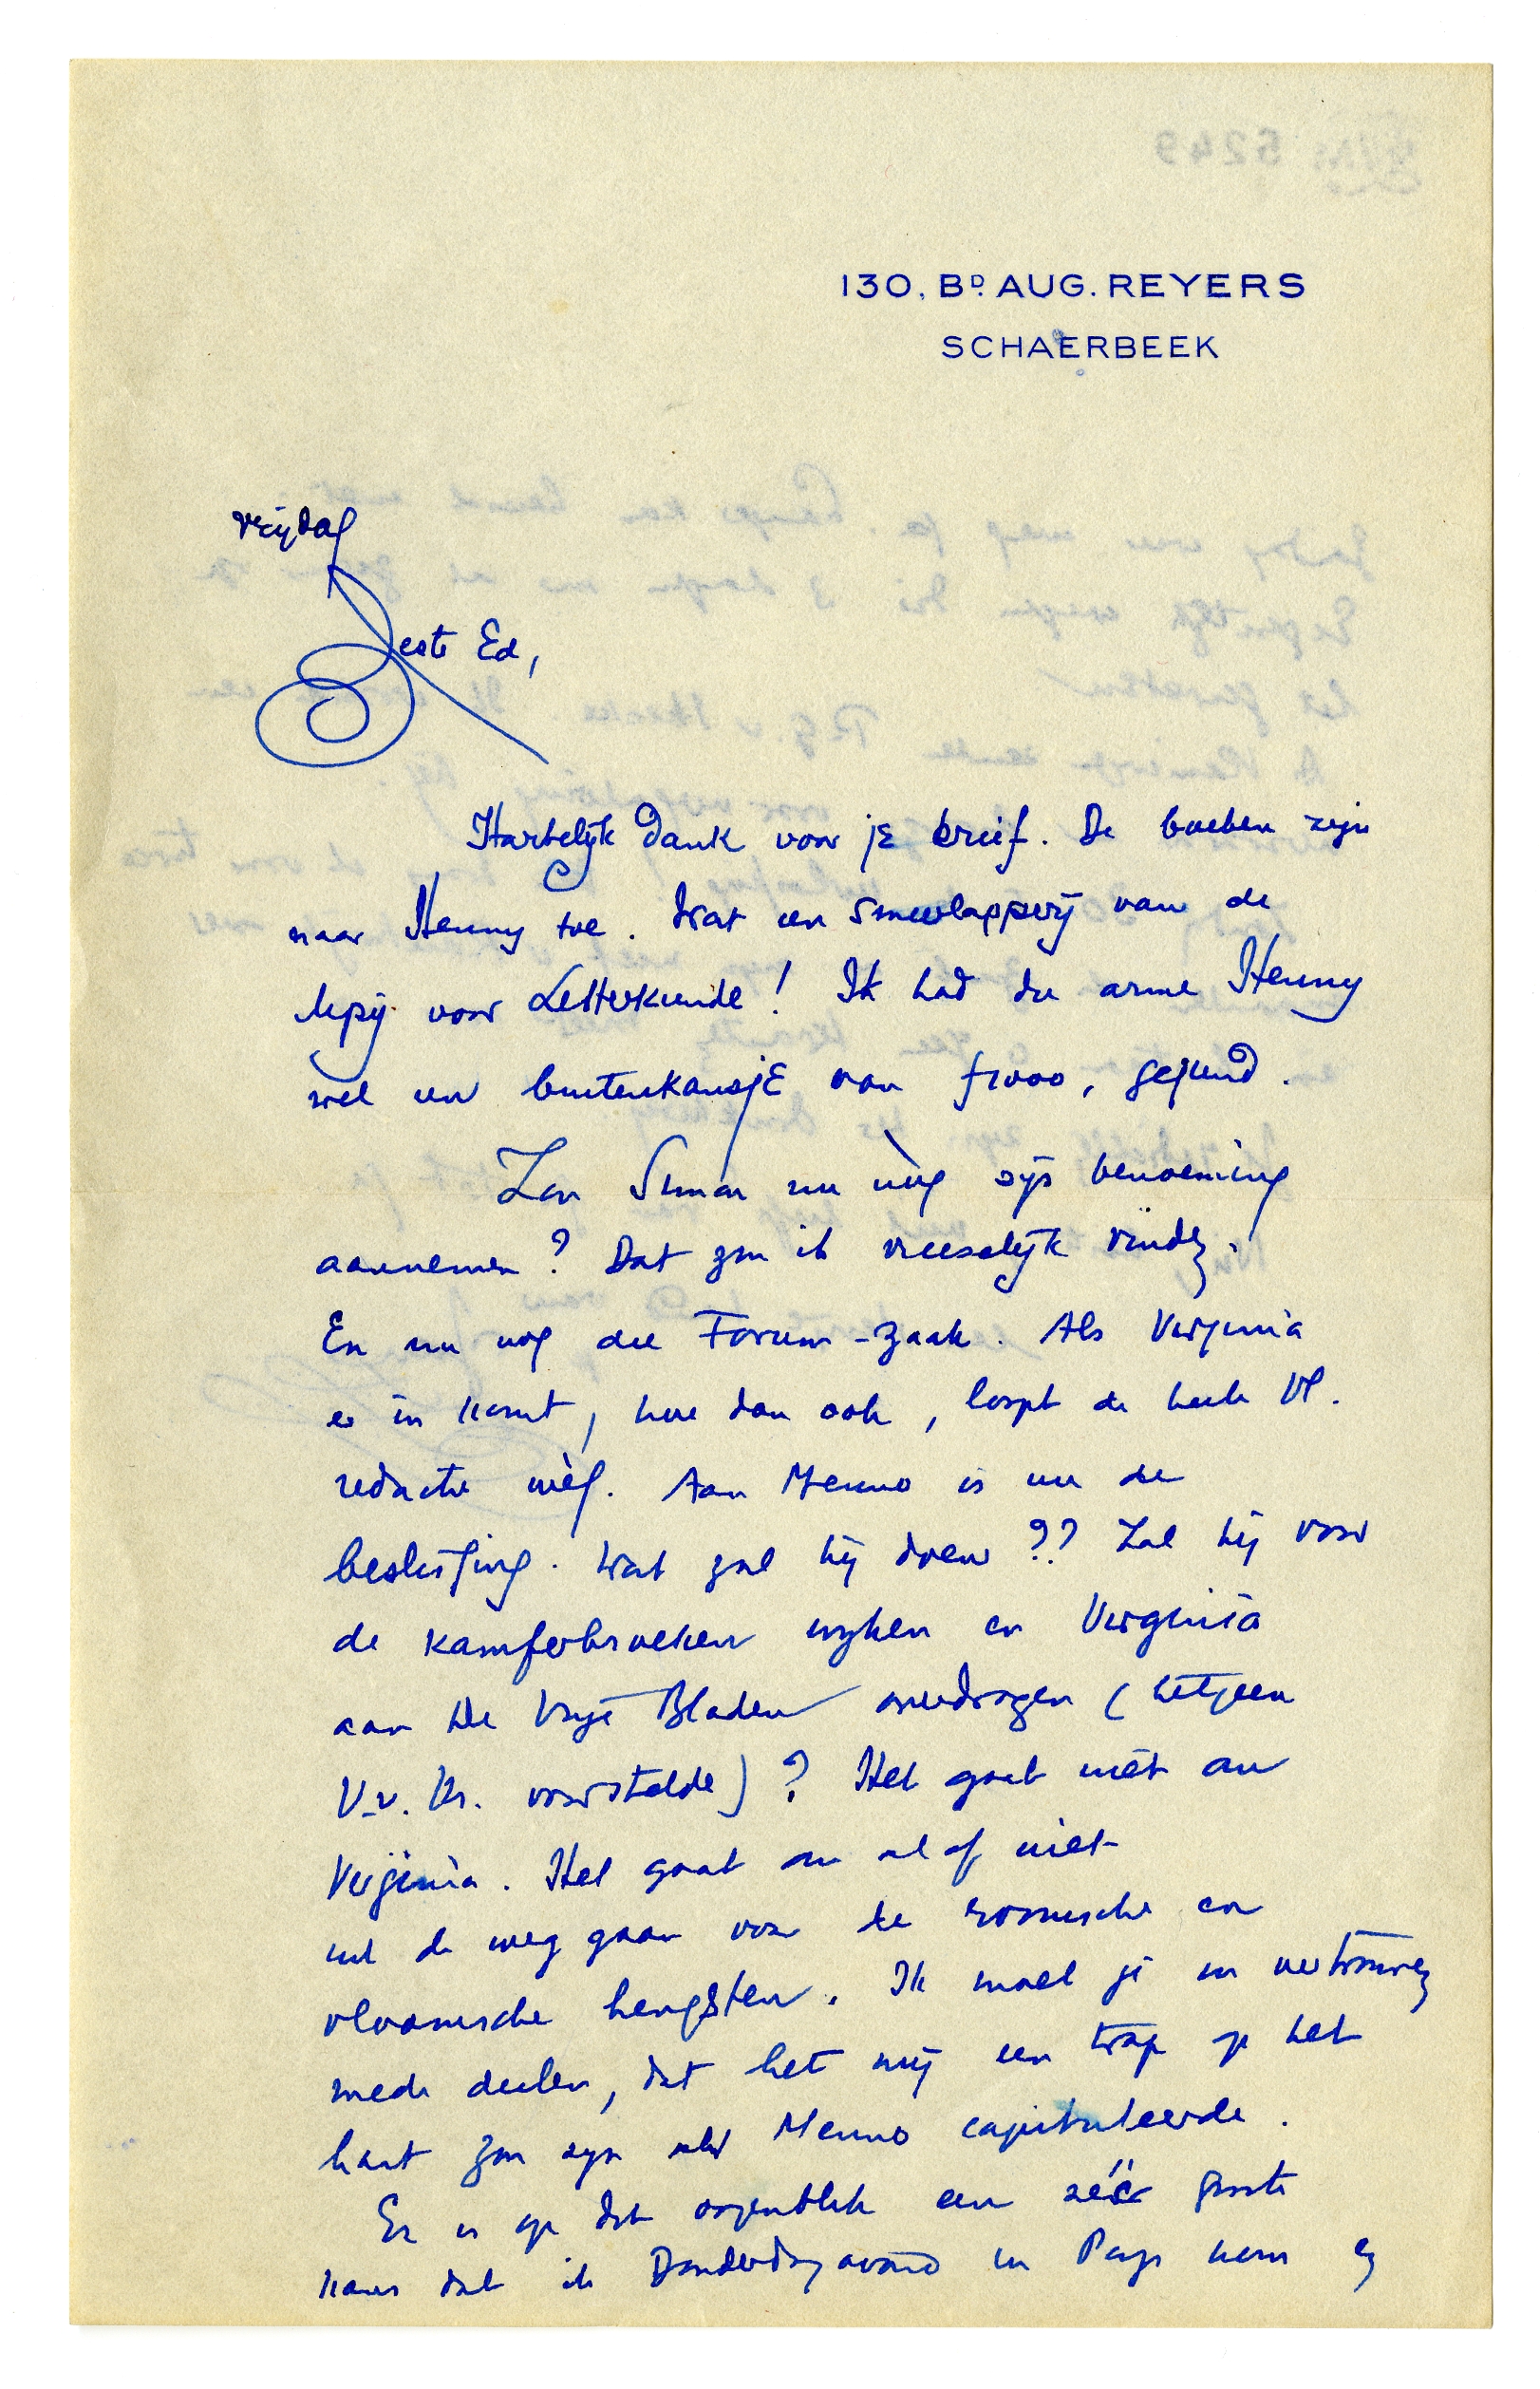 130, BD. AUG. REYERS
SCHAERBEEK
vrijdag
Beste Ed,
Hartelijk dank voor je brief. De boeken zijn
naar Henny toe. Wat een smeerlapperij van de
Mpij voor Letterkunde! Ik had die arme Henny
wel een buitenkansje van f 1000, gegund.
Zou Simon nu nòg zijn benoeming
aannemen? Dat zou ik vreeselijk vinden.
En nu nog die Forum-zaak. Als Virginia
er in komt, hoe dan ook, loopt de heele Vl.
redactie wèg. Aan Menno is nu de
beslissing. Wat zal hij doen?? Zal hij voor
de kamferbroeken wijken en Virginia
aan De Vrije Bladen overdragen (hetgeen
V.v.Kr. voorstelde)? Het gaat niet om
Virginia. Het gaat om al of niet
uit de weg gaan voor de roomsche en
vlaamsche hengsten. Ik moet je in vertrouwen
mede deelen, dat het mij een trap op het
hart zou zijn als Menno capituleerde.
Er is op dit oogenblik een zéér groote
kans dat ik Donderdagavond in Parijs kom en